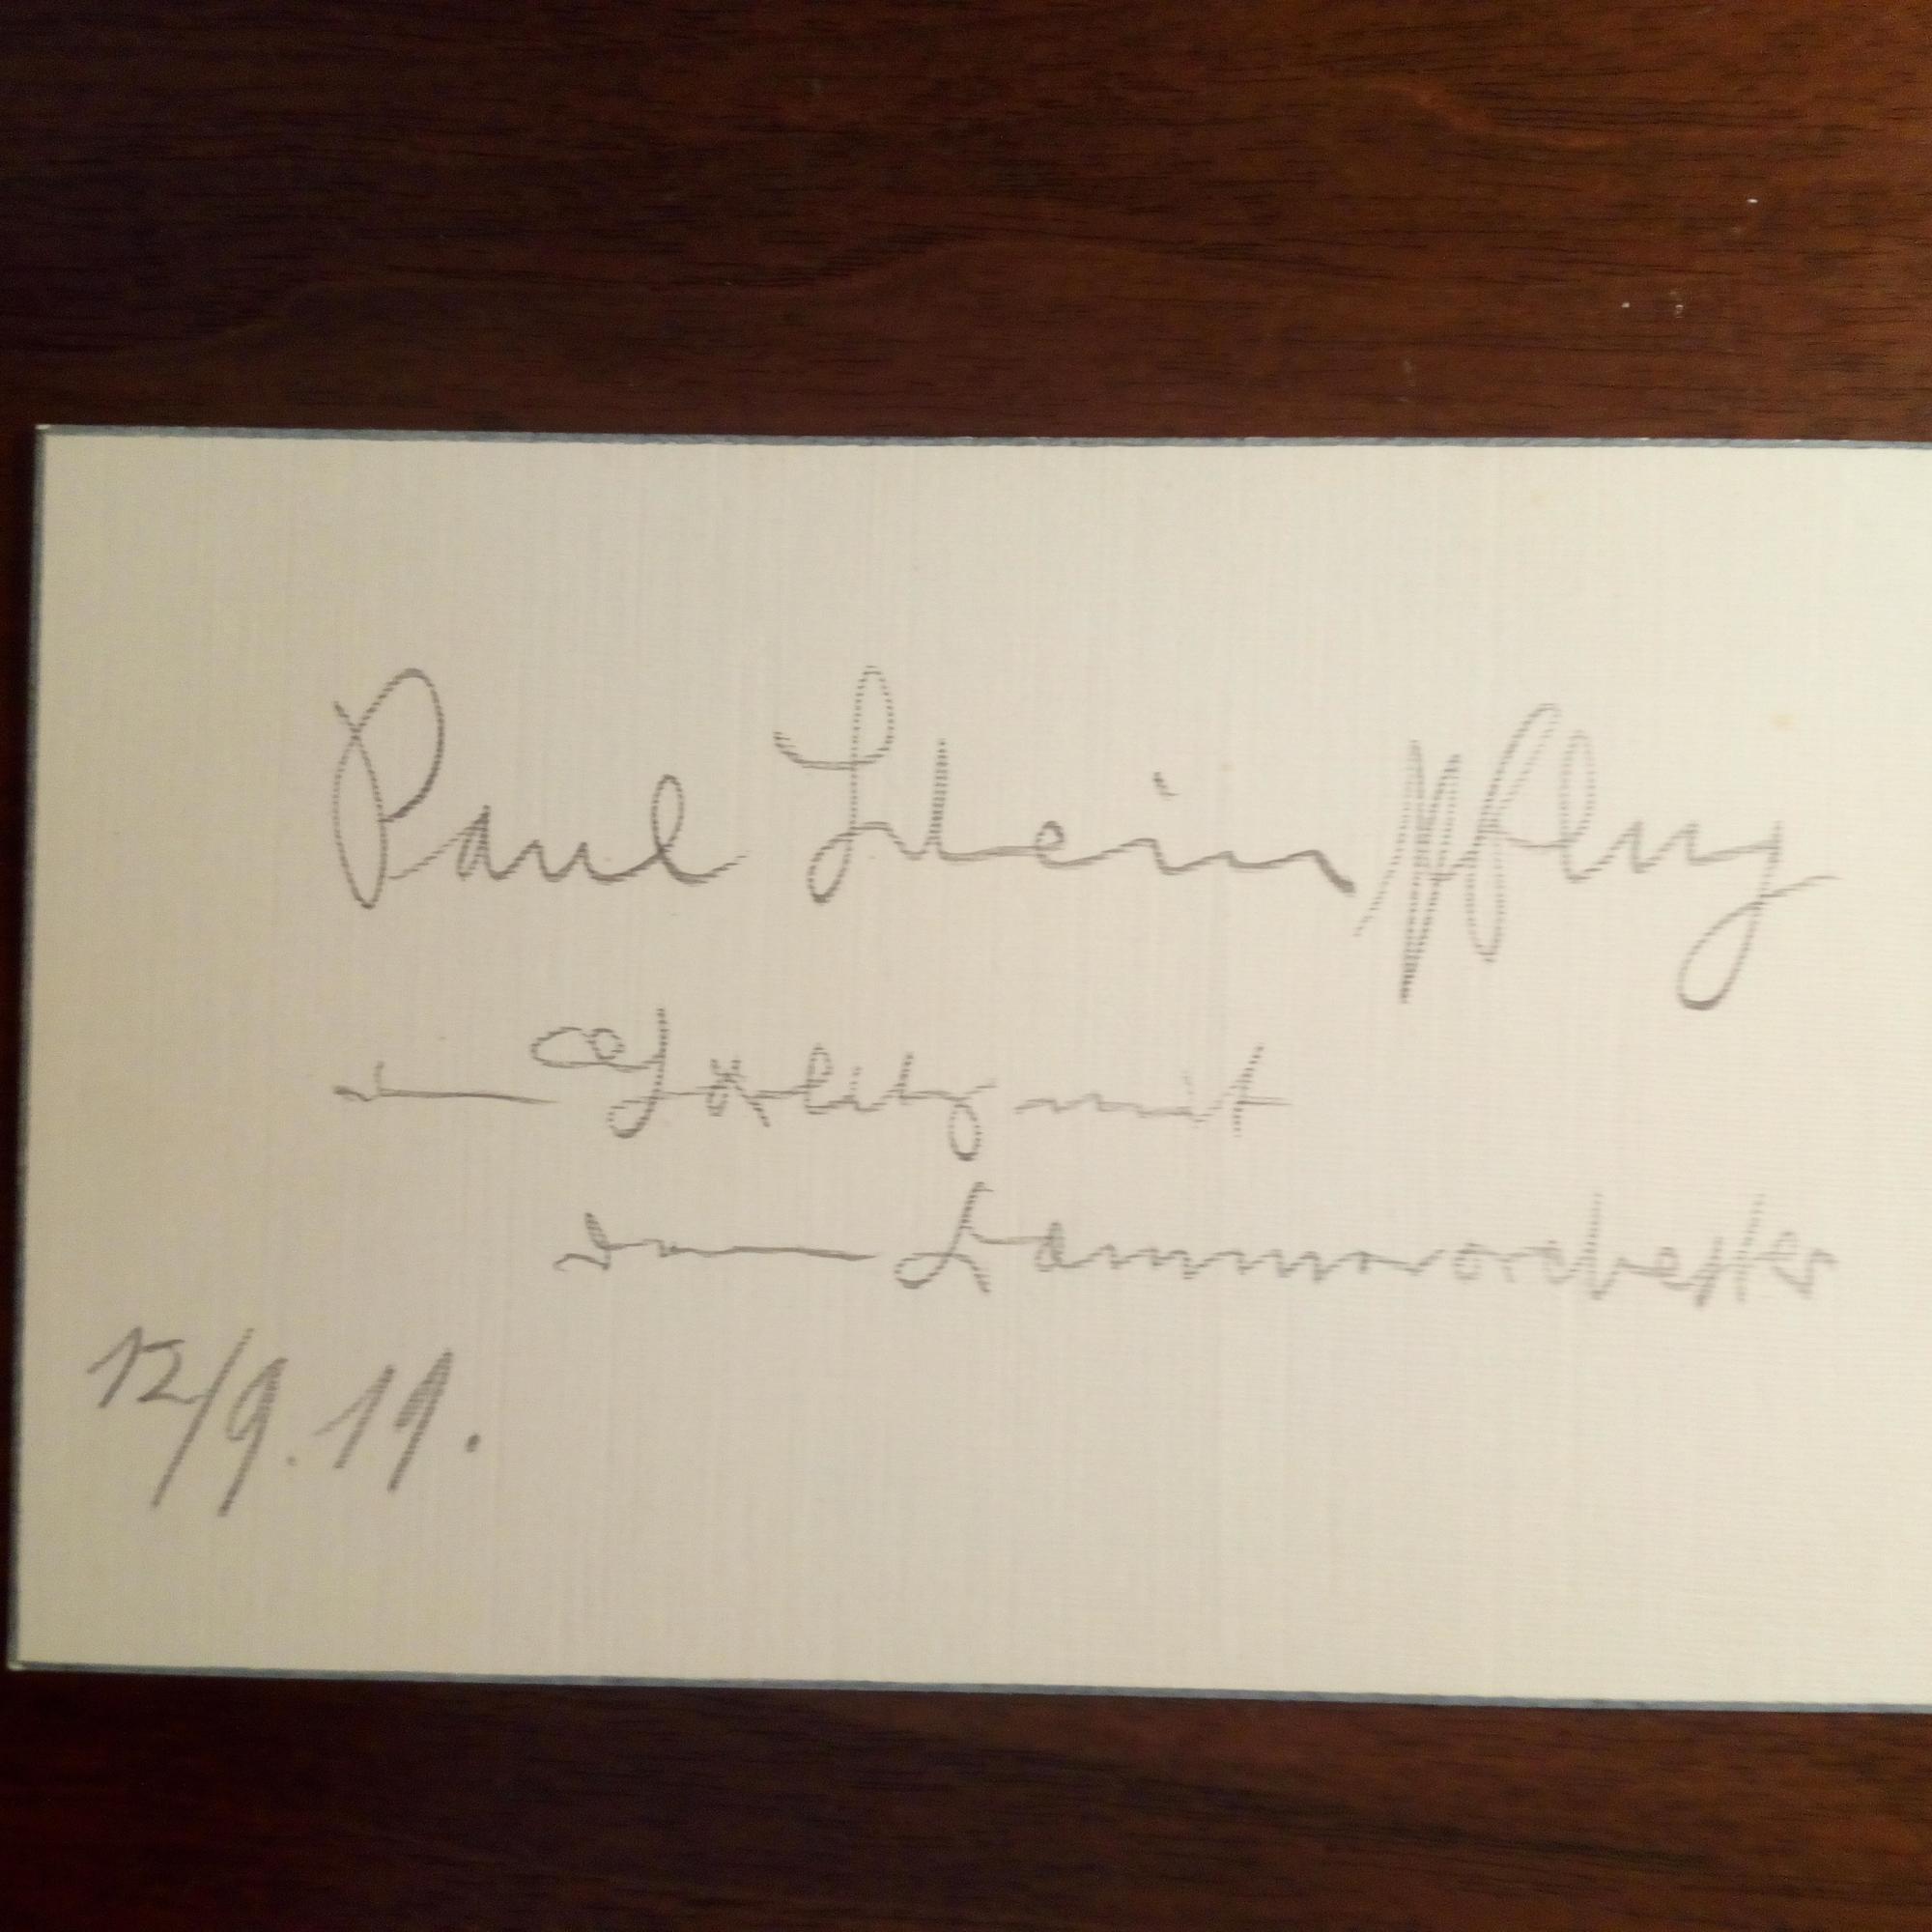 Paul Scheinpflug
in Görlitz mit
dem Kammerorchester
12/9.19.